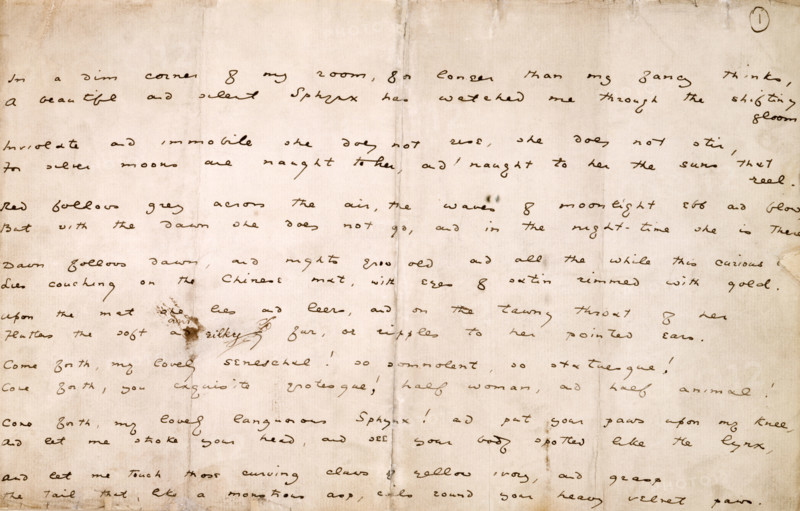 1
In a dim corner of my room, for longer than my fancy thinks,
A beautiful and silent Sphynx has watched me through the shifting
gloom
Inviolate and immobile she does not rise, she does not stir,
For silver moons are naught to her, and naught to her the suns that
reel.
Red follows grey across the air, the waves of moonlight ebb and flow
But with the dawn she does not go, and in the night-time she is there
Dawn follows dawn, and nights grow old and all the while this curious
Lies couching on the Chinese mat, with eyes of satin rimmed with gold.
Upon the mat she lies and leers, and on the tawny throat of her
Flutters the soft and silky fur, or ripples to her pointed ears.
Come forth, my lovely seneschal! so somnolent, so statuesque!
Come forth, you exquisite grotesque! half woman, and half animal!
Come forth, my lovely languorous Sphynx! and put your paws upon my knee,
And let me stroke your head, and see your body spotted like the lynx,
And let me touch those curving claws of yellow ivory, and grasp
The tail that, like a monstrous asp, coils round your heavy velvet paws.